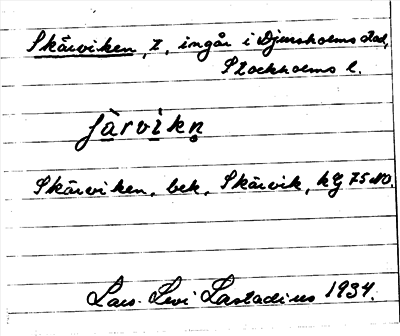 Skärviken, Z, ingår i Djursholms stad,
Stockholms l.
ʃàrvìkn̥
Skärviken, bek. Skärvik, kG 75 NO.
Lars-Levi Læstadius 1934.